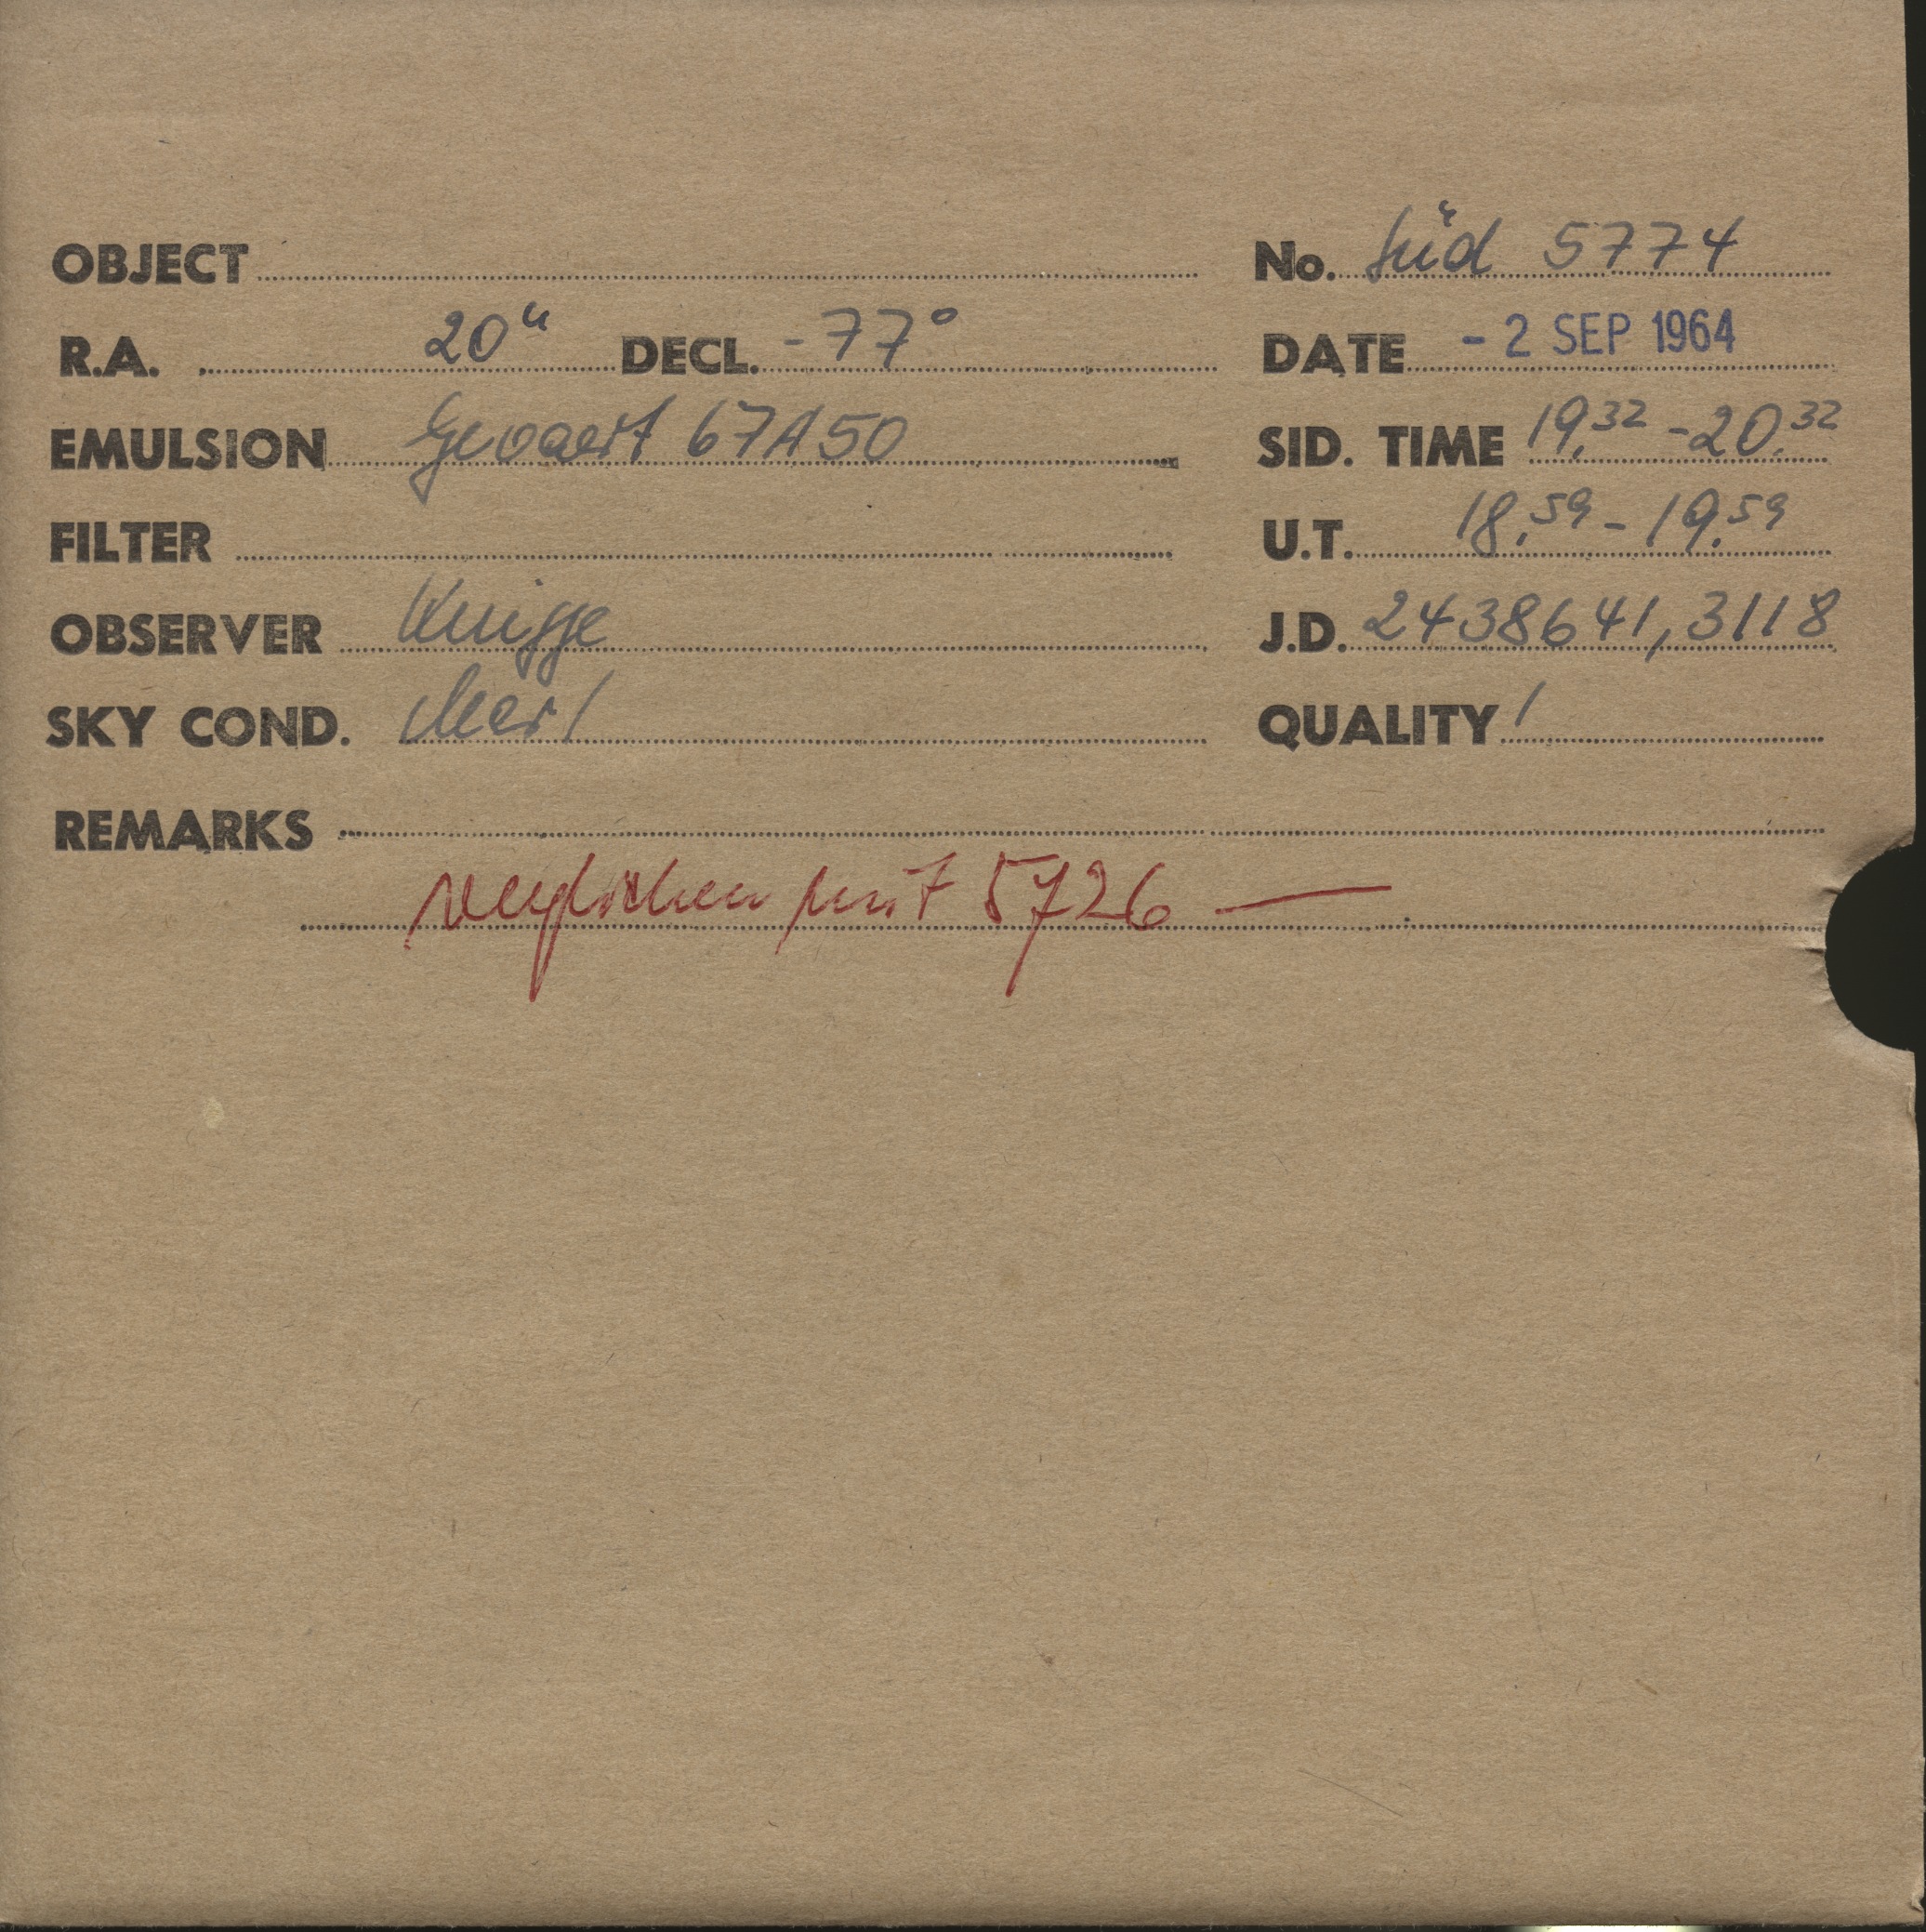 OBJECT No. Süd 5774
R.A. 20h DECL. -77° DATE - 2 SEP 1964
EMULSION Gevaert 67A50 SID. TIME 19,32 - 20,32
FILTER U.T. 18,59 - 19,59
OBSERVER Knigge J.D. 2438641,3118
SKY COND. klar 1 QUALITY 1
REMARKS
verglichen mit 5726 —